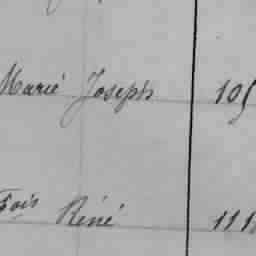 Marié Joseph 105
Fois Réné 111